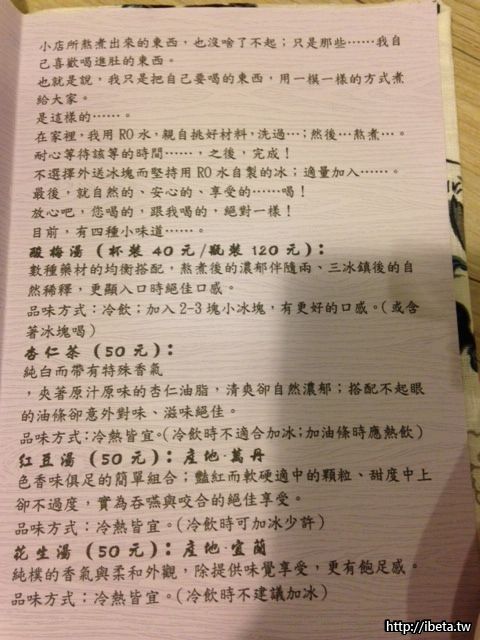 小店所熬煮出來的東西，也沒啥了不起；只是那些……我自
己喜歡喝進肚的東西。
也就是說，我只是把自己要喝的東西，用一模一樣的方式煮
給大家。
是這樣的……。
在家裡，我用RO水，親自挑好材料，洗過…；然後…熬煮…。
耐心等待該等的時間……，之後，完成！
不選擇外送冰塊而堅持用RO水自製的冰；適量加入……。
最後，就自然的、安心的、享受的……喝！
放心吧，您喝的，跟我喝的，絕對一樣！
目前，有四種小味道……。
酸梅湯（杯裝 40元/瓶裝 120元）：
數種藥材的均衡搭配，熬煮後的濃郁伴隨兩、三冰鎮後的自
然稀釋，更顯入口時絕佳口感。
品味方式：冷飲；加入2-3塊小冰塊，有更好的口感。（或含
著冰塊喝）
杏仁茶（50元）：
純白而帶有特殊香氣
，夾著原汁原味的杏仁油脂，清爽卻自然濃郁；搭配不起眼
的油條卻意外對味、滋味絕佳。
品味方式：冷熱皆宜。（冷飲時不適合加冰；加油條時應熱飲）
紅豆湯（50元）：產地·萬丹
色香味俱足的簡單組合；豔紅而軟硬適中的顆粒、甜度中上
卻不過度，實為吞嚥與咬合的絕佳享受。
品味方式：冷熱皆宜。（冷飲時可加冰少許）
花生湯（50元）：產地·宜蘭
純樸的香氣與柔和外觀，除提供味覺享受，更有飽足感。
品味方式：冷熱皆宜。（冷飲時不建議加冰）
http://ibeta.tw